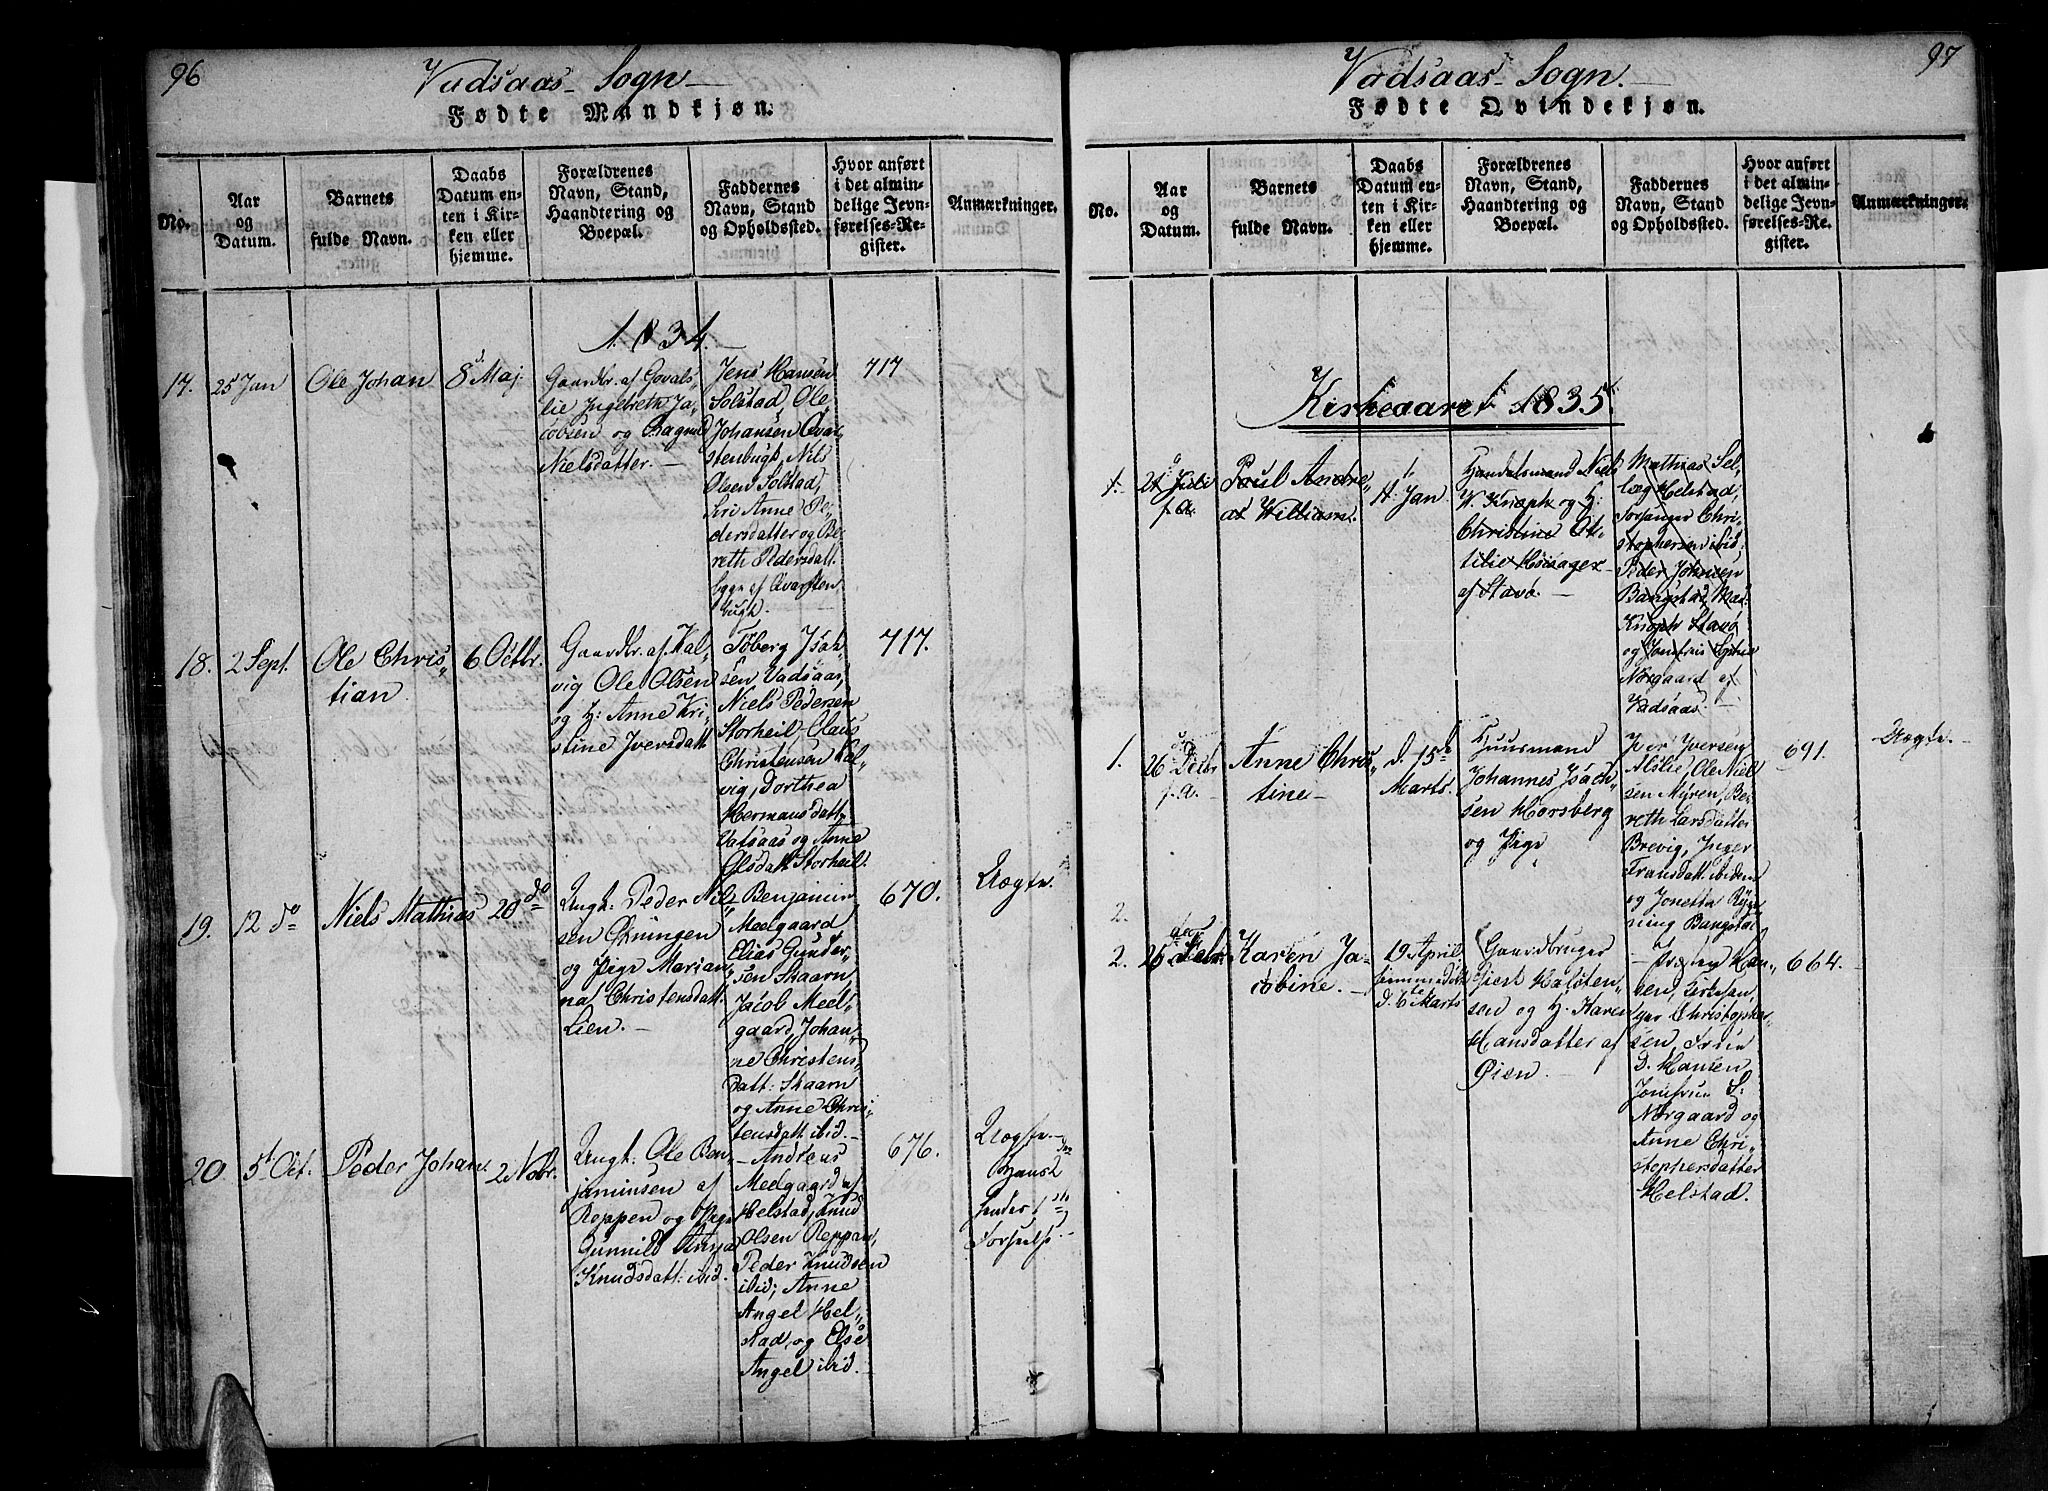 96
Vadsaas Sogn
Fødte Mandkjøn.
No.
Aar
og
Datum.
Barnets
fulde Navn.
Daabs
Datum en-
ten i Kir-
ken eller
hjemme.
Forældrenes
Navn, Stand,
Haandtering og
Boepæl.
Faddernes
Navn, Stand
og Opholdssted.
Hvor anført
i det almin-
delige Jevn-
førelses-Re-
gister.
Anmærkninger.
1834.
17.
25 Jan
Ole Johan
8 Maj
Gaardbr. af Govals,,
lie Ingebreth Ja-
cobsen og Ragnild
Nielsdatter. —
Jens Hansen
Solstad, Ole
Johansen Qvar-
stenbugt, Nils
Olsen Solstad,
Anne Pe-
dersdatter og Be-
reth Pedersdatt.
begge af Qvarsten
bugt.
717
18.
2 Sept.
Ole Chris,,
tian
6 Octbr.
Gaardbr. af Kal-
vig Ole Olsen
og H: Anne Kri-
stine Iversdatt
Toberg Isak,,
sen Vadsaas,
Niels Pedersen
Storheil, Claus
Christensen Kal-
vig, Dorthea
Hermansdatt.
Vatsaas og Anne
Olsdatt Storheil.
717.
19.
12 do
Niels Mathias
20 do
Ungk: Peder Nil-
sen
og Pige Marian,,
na Christensdatt.
Lien. —
Benjamin
Meelgaard
Elias Gunder-
sen Skaarn
Jacob Meel-
gaard, Johan-
ne Christens
Datt: Skaarn
og Anne Chris-
tensdatt ibid. —
670.
Uægte.
20.
5t Oct.
Peder Johan
2 Nobr.
Ungk: Ole Ben-
jaminsen af
Reppen og Pige
Gunnild Anna
Knudsdatt: ibid.
Andreas
Meelgaard af
Helstad, Knud
Olsen Reppen,
Peder Knudsen
ibid; Anne
Angel Hel,,
stad, og Else
Angel ibid. —
676.
Uægte. —
97
Vadsaas Sogn.
Fødte Qvindekjøn.
No.
Aar
og
Datum.
Barnets
fulde Navn.
Daabs
Datum en-
ten i Kir-
ken eller
hjemme.
Forældrenes
Navn, Stand,
Haandtering og
Boepæl.
Faddernes
Navn, Stand
og Opholdssted.
Hvor anført
i det almin-
delige Jevn-
førelses-Re-
gister.
Anmærkninger.
Kirkeaaret 1835.
1.
21 Juli
f. A.
Paul Andre,,
as William.
11 Jan.
Handelsmand Niels
W. Knoph og H:
Christine Ot-
tilie Hoisager
af Stavø. —
Mathias Sel-
læg Helstad,
Torsanger Chri-
stophersen ibid:
Peder Johnsen
Bangstad, Mad:
Knoph Stavø
og Jomfrue Sophie
Norgaard af
Vadsaas. —
1.
26 Debr
f. A.
Anne Chris,,
tine —
d. 15de
Marts.
Huusmand
Johannes Isach,,
sen Horsberg
og Pige
Iver Iversen
Alslie, Ole Niel
sen Myren, Be-
reth Larsdatter
Brevig, Inger
Fransdatt. ibidem
og Jonetta
Bangstad
691.
Uægte. —
2.
2.
25 Febr
Karen Ja-
cobine. —
19 April
hjemmedøbt
d. 6te Marts
Gaardbruger
Giert Halsten,,
sen og H. Karen
Hansdatter af
Øien —
Han,,
sen,
Christopher-
sen, Frue
D. Hansen
Jomfrue S:
Norgaard og
Anne Chri-
stophersdatter
Helstad.
664. —